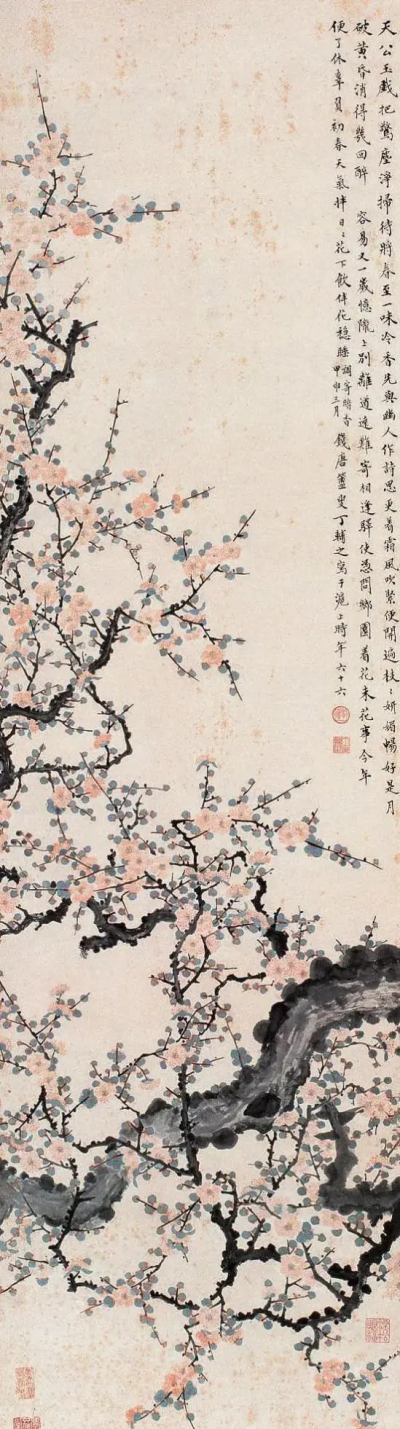 天公玉戲把驚塵淨掃待將春至一味冷香先與幽人作詩思更着霜風吹緊便開遍枝〻妍媚暢好是月
破黃昏消得幾回醉 容易又一歲憶隴上別離道遠難寄相逢驛使憑問鄉園着花未花事今年
便了休辜負初春天氣拌日〻花下飲伴花穩睡 調寄暗香 甲申三月 錢唐簠叟丁輔之寫于滬上時年六十六